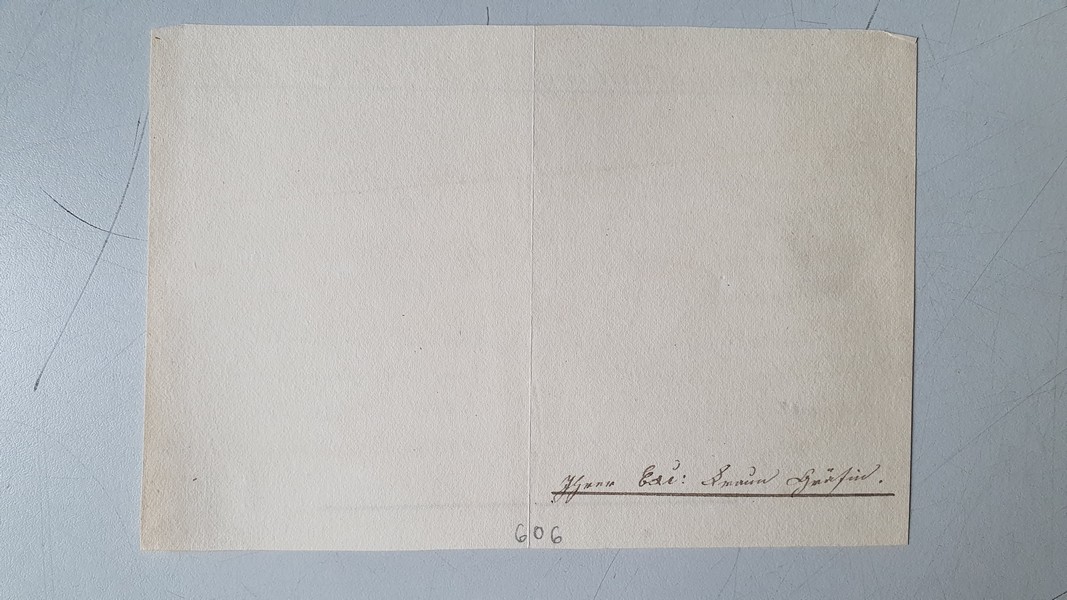 Ihrer Exc: Fraun Gräfin.
606